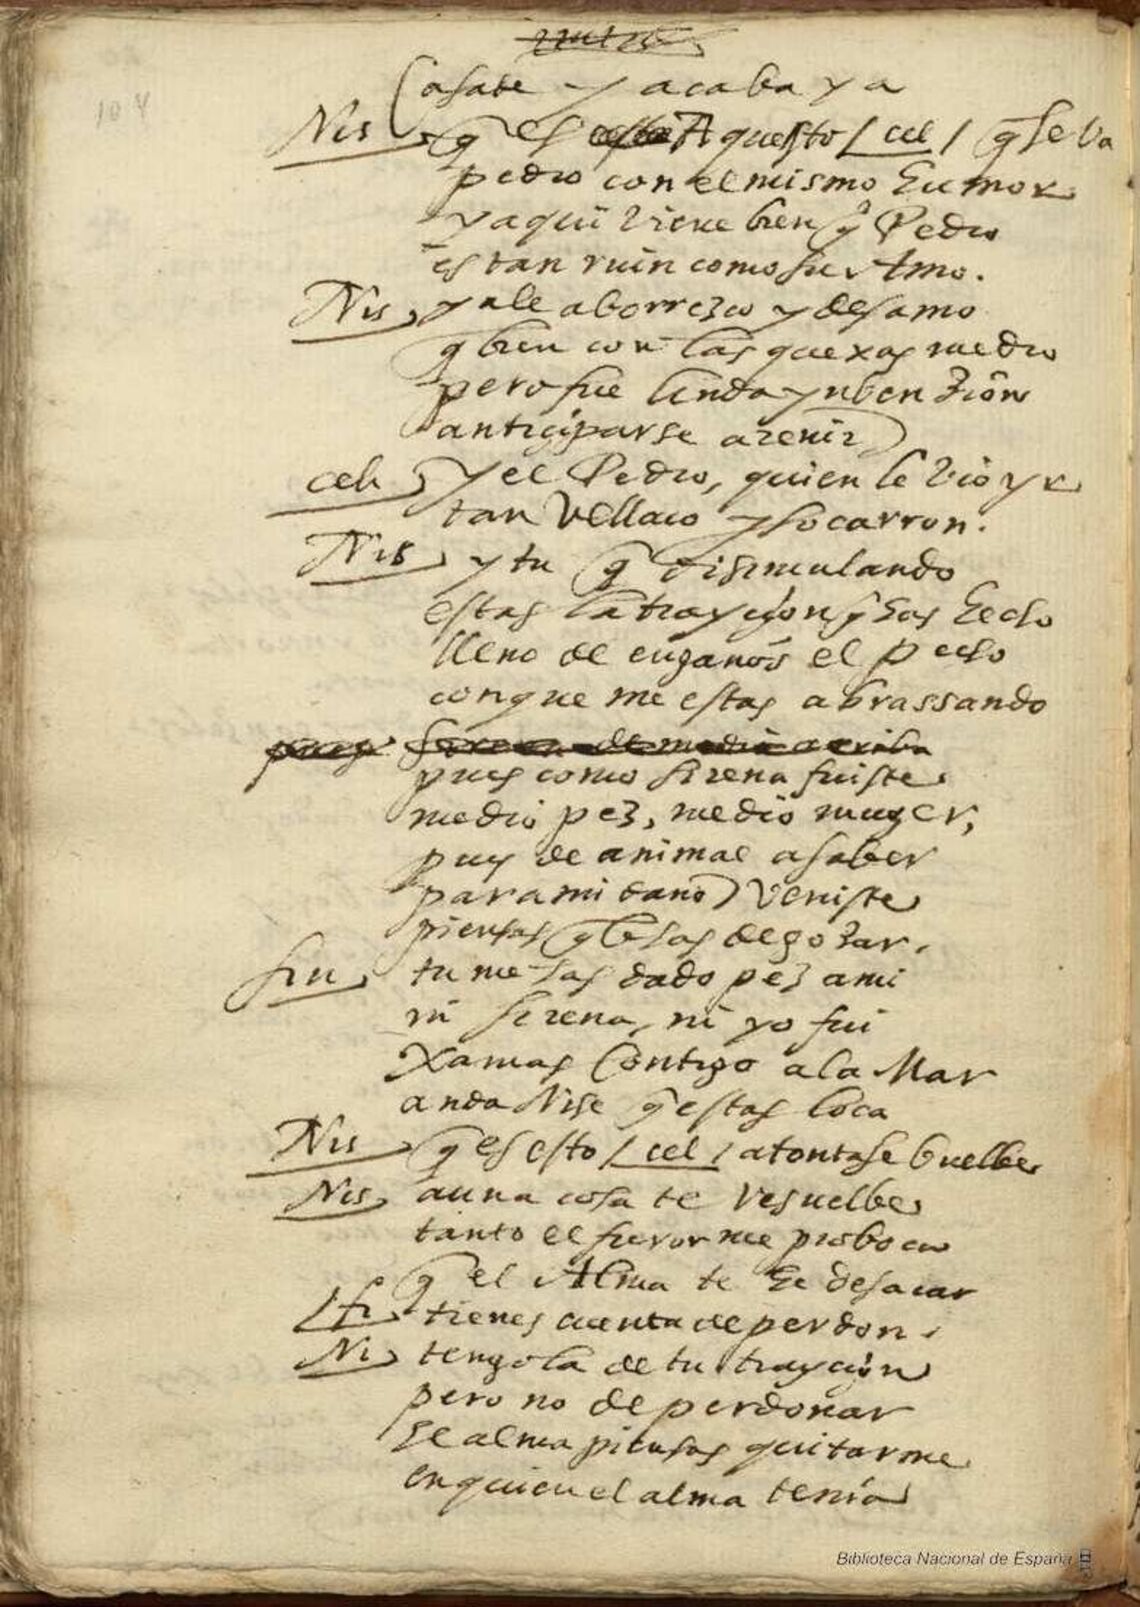 casate y acaba ya
Nis q es Aquesto / cel / q se va
pedro con el mismo humor
y aqui viene bien q Pedro
es tan ruin como su Amo.
Nis ya le aborrezco y desamo
q bien con las quexas medio
pero fue linda ynbenzion
anticiparse a renir
cel y el Pedro, quien le vio
tan vellaco y socarron.
Nis y tu q disimulando
estas la trayçion q has hecho
lleno de engaños el pecho
con que me estas abrassando
pues como sirena fuiste
medio pez, medio muger,
pues de animal a saber
para mi daño veniste
piensas q le has de gozar.
fin tu me has dado pez a mi
ni sirena, ni yo fui
xamas contigo a la Mar
anda Nise q estas loca
Nis q es esto / cel / a tonta se buelbe
Nis a una cosa te resuelbe
tanto el furor me proboca
q el Alma te he de sacar
/ fi tienes cuenta de perdon.
Ni tengola de tu trayçion
pero no de perdonar
el alma piensas quitarme
en quien el alma tenia
104
Biblioteca Nacional de España